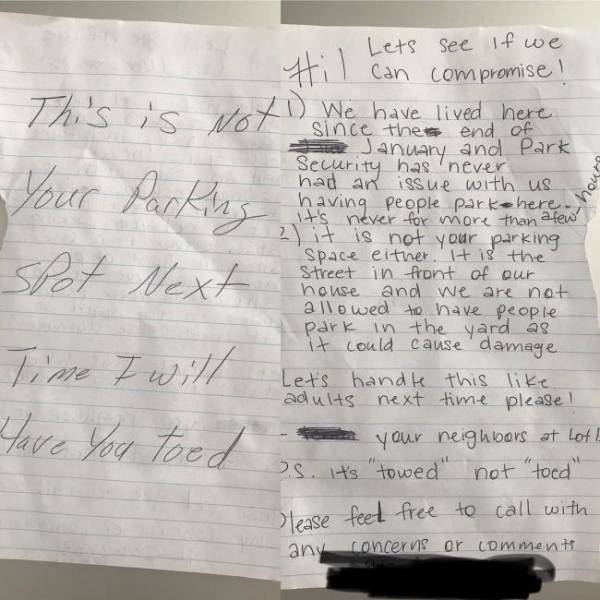 This is Not
Your Parking
Spot Next
Time I will
Have You toed
Hi! Lets see if we
can compromise!
1) We have lived here
since the end of
January and Park
Security has never
had an issue with us
having people park here.
It's never for more than a few hours
2) it is not your parking
space either. It is the
street in front of our
house and we are not
allowed to have people
park in the yard as
it could cause damage
Let's handle this like
adults next time please!
- your neighbors at Lot
P.S. it's "towed" not "toed"
Please feel free to call with
any concerns or comments